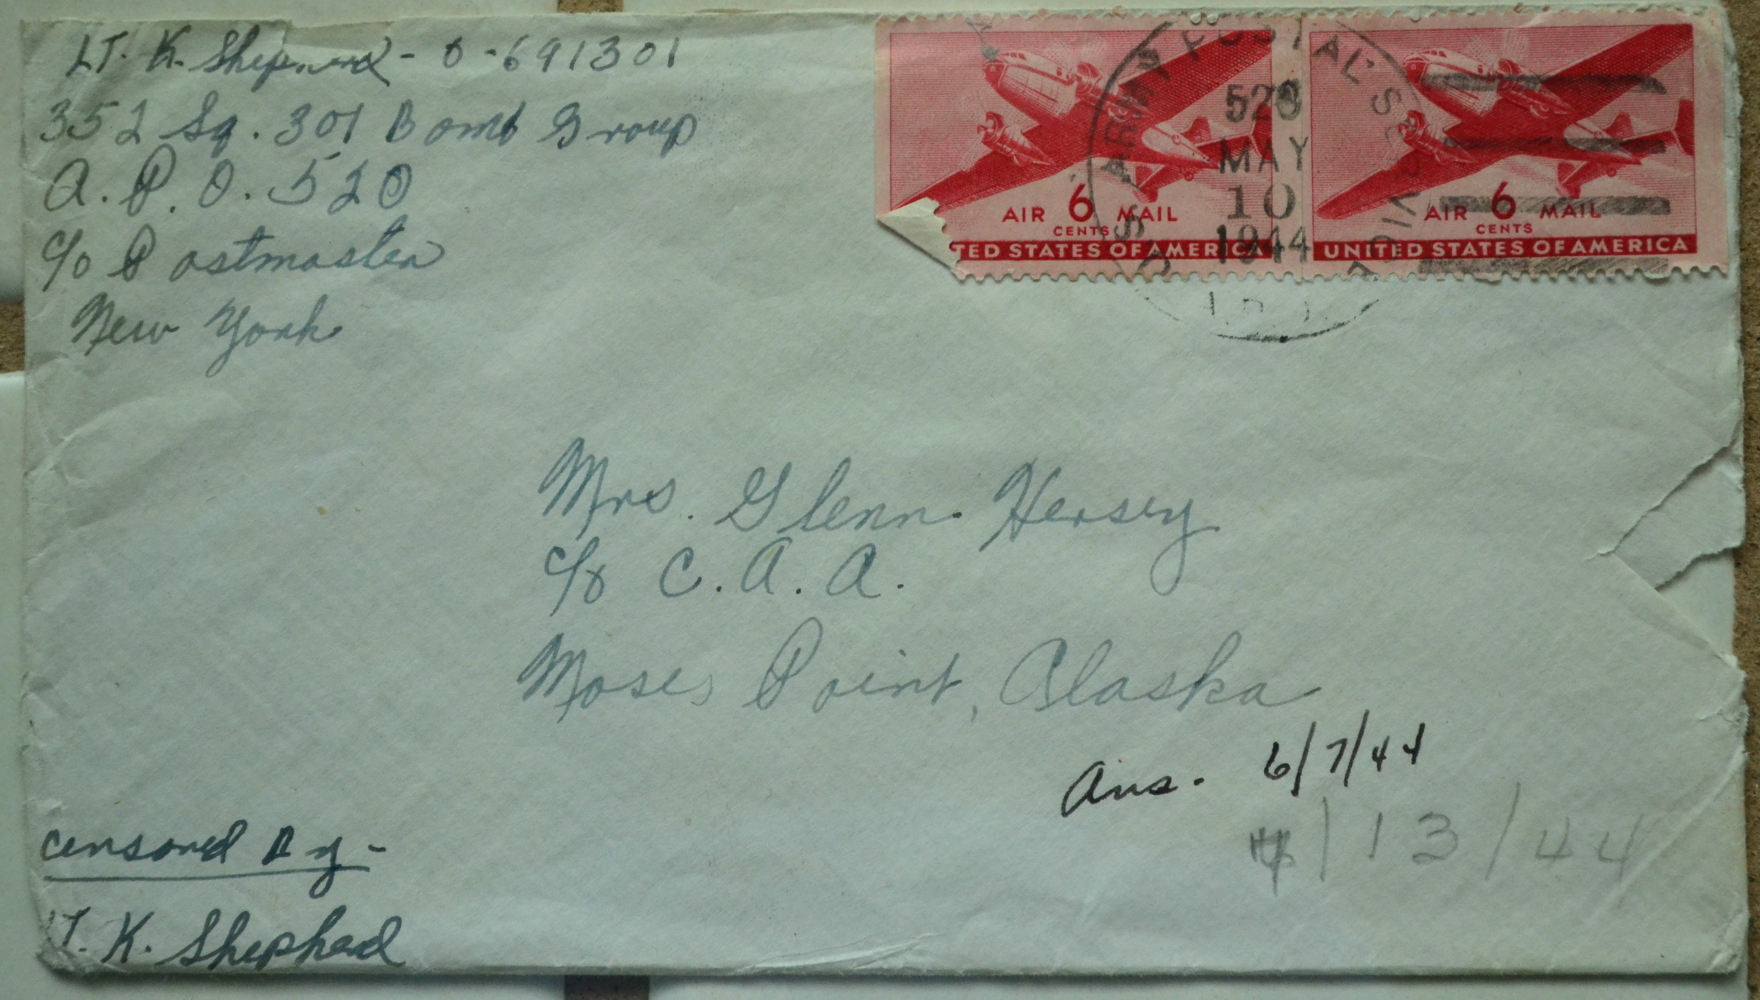 LT. K. Shepherd - 0-691301
352 Sq. 301 Bomb Group
A. P. O. 520
c/o Postmaster
New York
U.S. ARMY POSTAL SERVICE
520
MAY
10
1944
AIR 6 MAIL
CENTS
TED STATES OF AMERICA
AIR 6 MAIL
CENTS
UNITED STATES OF AMERICA
Mrs. Glenn Hersey
c/o C. A. A.
Moses Point, Alaska
Ans. 6/7/44
/13/44
Censored By-
LT. K. Shepherd